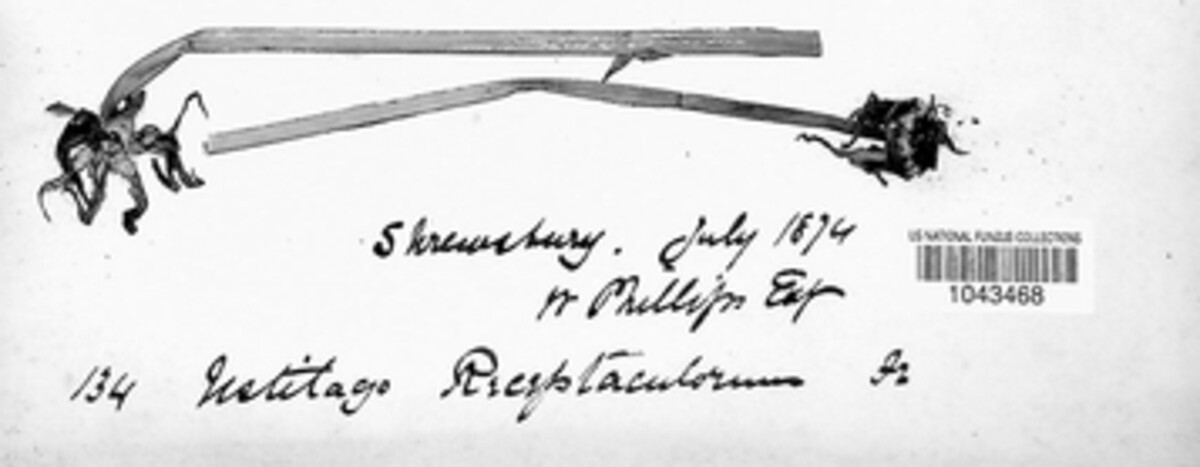 Shrewsbury. July 1874
W Phillips Esq
US NATIONAL FUNGUS COLLECTIONS
1043468
134 Ustilago Receptaculorum Fr